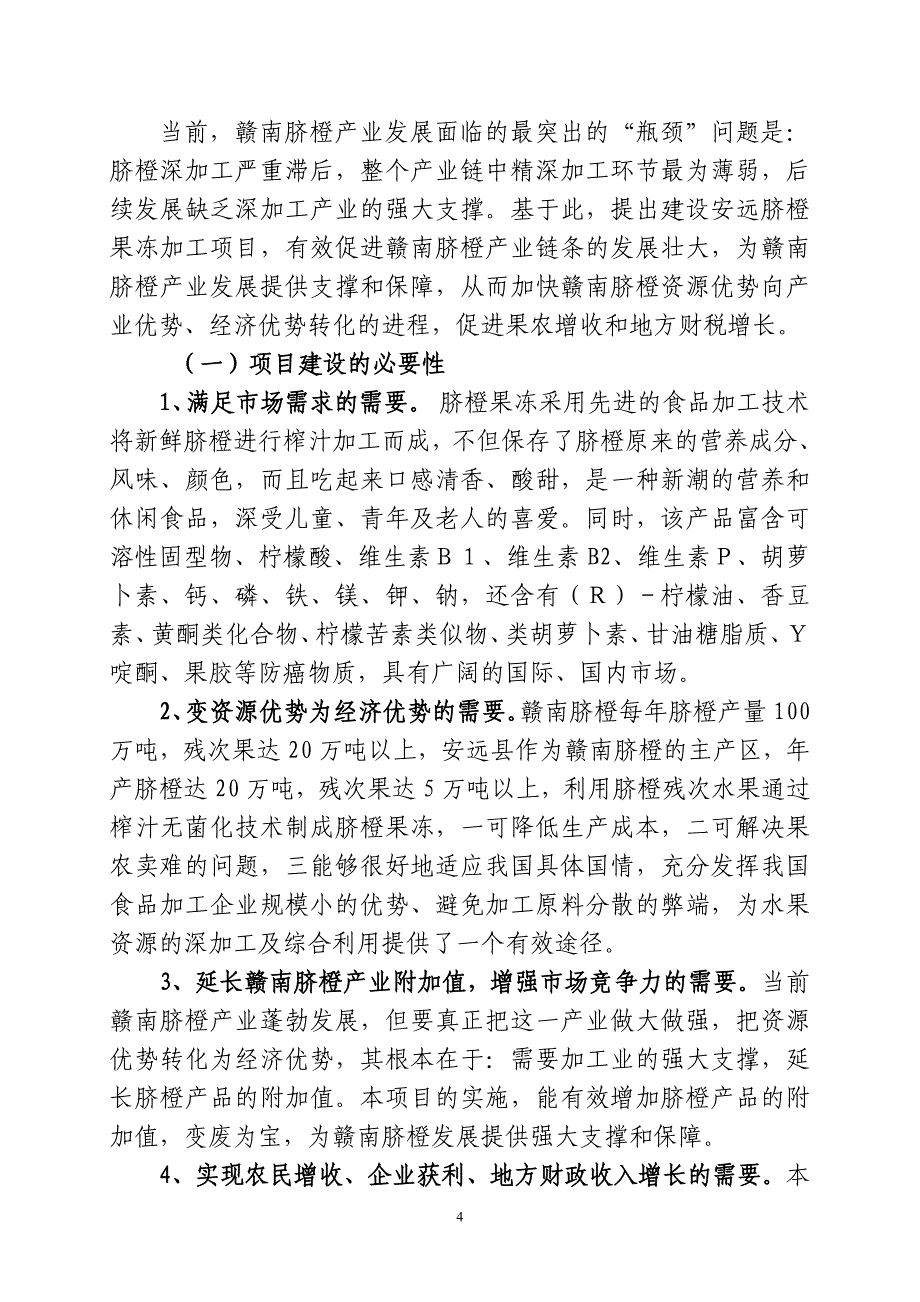 当前，赣南脐橙产业发展面临的最突出的“瓶颈”问题是：
脐橙深加工严重滞后，整个产业链中精深加工环节最为薄弱，后
续发展缺乏深加工产业的强大支撑。基于此，提出建设安远脐橙
果冻加工项目，有效促进赣南脐橙产业链条的发展壮大，为赣南
脐橙产业发展提供支撑和保障，从而加快赣南脐橙资源优势向产
业优势、经济优势转化的进程，促进果农增收和地方财税增长。
（一）项目建设的必要性
1、满足市场需求的需要。 脐橙果冻采用先进的食品加工技术
将新鲜脐橙进行榨汁加工而成，不但保存了脐橙原来的营养成分、
风味、颜色，而且吃起来口感清香、酸甜，是一种新潮的营养和
休闲食品，深受儿童、青年及老人的喜爱。同时，该产品富含可
溶性固型物、柠檬酸、维生素Ｂ１、维生素B2、维生素Ｐ、胡萝
卜素、钙、磷、铁、镁、钾、钠，还含有（Ｒ）－柠檬油、香豆
素、黄酮类化合物、柠檬苦素类似物、类胡萝卜素、甘油糖脂质、Ｙ
啶酮、果胶等防癌物质，具有广阔的国际、国内市场。
2、变资源优势为经济优势的需要。赣南脐橙每年脐橙产量 100
万吨，残次果达 20 万吨以上，安远县作为赣南脐橙的主产区，年
产脐橙达 20 万吨，残次果达 5 万吨以上，利用脐橙残次水果通过
榨汁无菌化技术制成脐橙果冻，一可降低生产成本，二可解决果
农卖难的问题，三能够很好地适应我国具体国情，充分发挥我国
食品加工企业规模小的优势、避免加工原料分散的弊端，为水果
资源的深加工及综合利用提供了一个有效途径。
3、延长赣南脐橙产业附加值，增强市场竞争力的需要。当前
赣南脐橙产业蓬勃发展，但要真正把这一产业做大做强，把资源
优势转化为经济优势，其根本在于：需要加工业的强大支撑，延
长脐橙产品的附加值。本项目的实施，能有效增加脐橙产品的附
加值，变废为宝，为赣南脐橙发展提供强大支撑和保障。
4、实现农民增收、企业获利、地方财政收入增长的需要。本
4